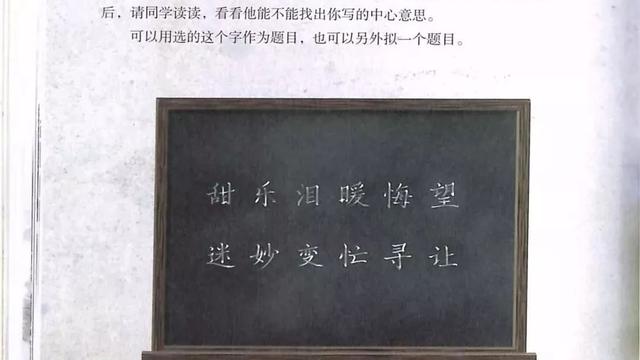 后，请同学读读，看看他能不能找出你写的中心意思。
可以用选的这个字作为题目，也可以另外拟一个题目。
甜乐泪暖悔望
迷妙变忙寻让